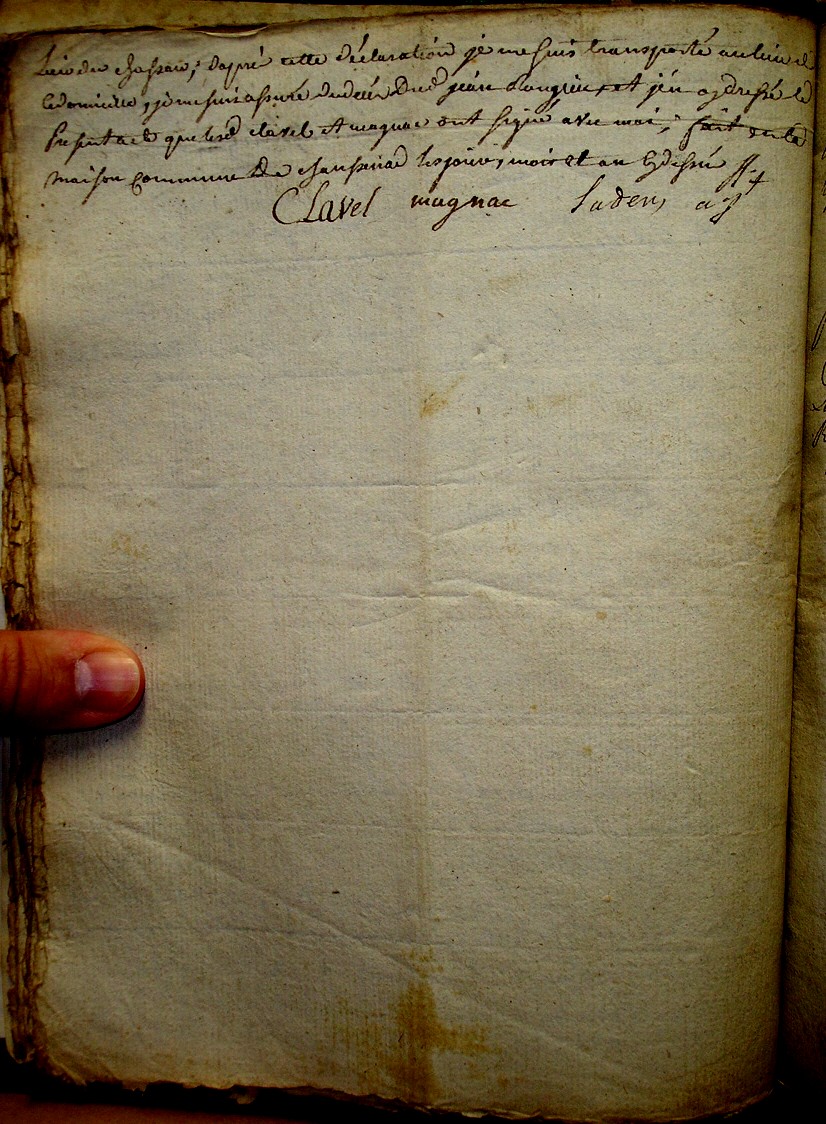 Lieu du chassan, dapré cette déclaration je me suis transporté au lieu de
ce domicile, je me suis assuré du décès dud jean et jen ay dressé le
present acte que lesd clavel et magnac ont signé avec moi, fait en la
maison commune de chaussenac les jour, mois et an cy dessus
Clavel magnac Ladens aj